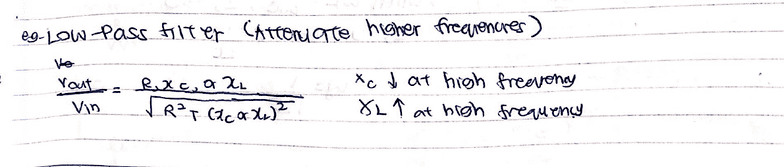 eg-Low-Pass filter (Attenuate higher frequencies)
Vo
Vout / Vin = R, Xc, or XL / √R²+ (Xc or XL)²
Xc ↓ at high freevency
XL ↑ at high frequency